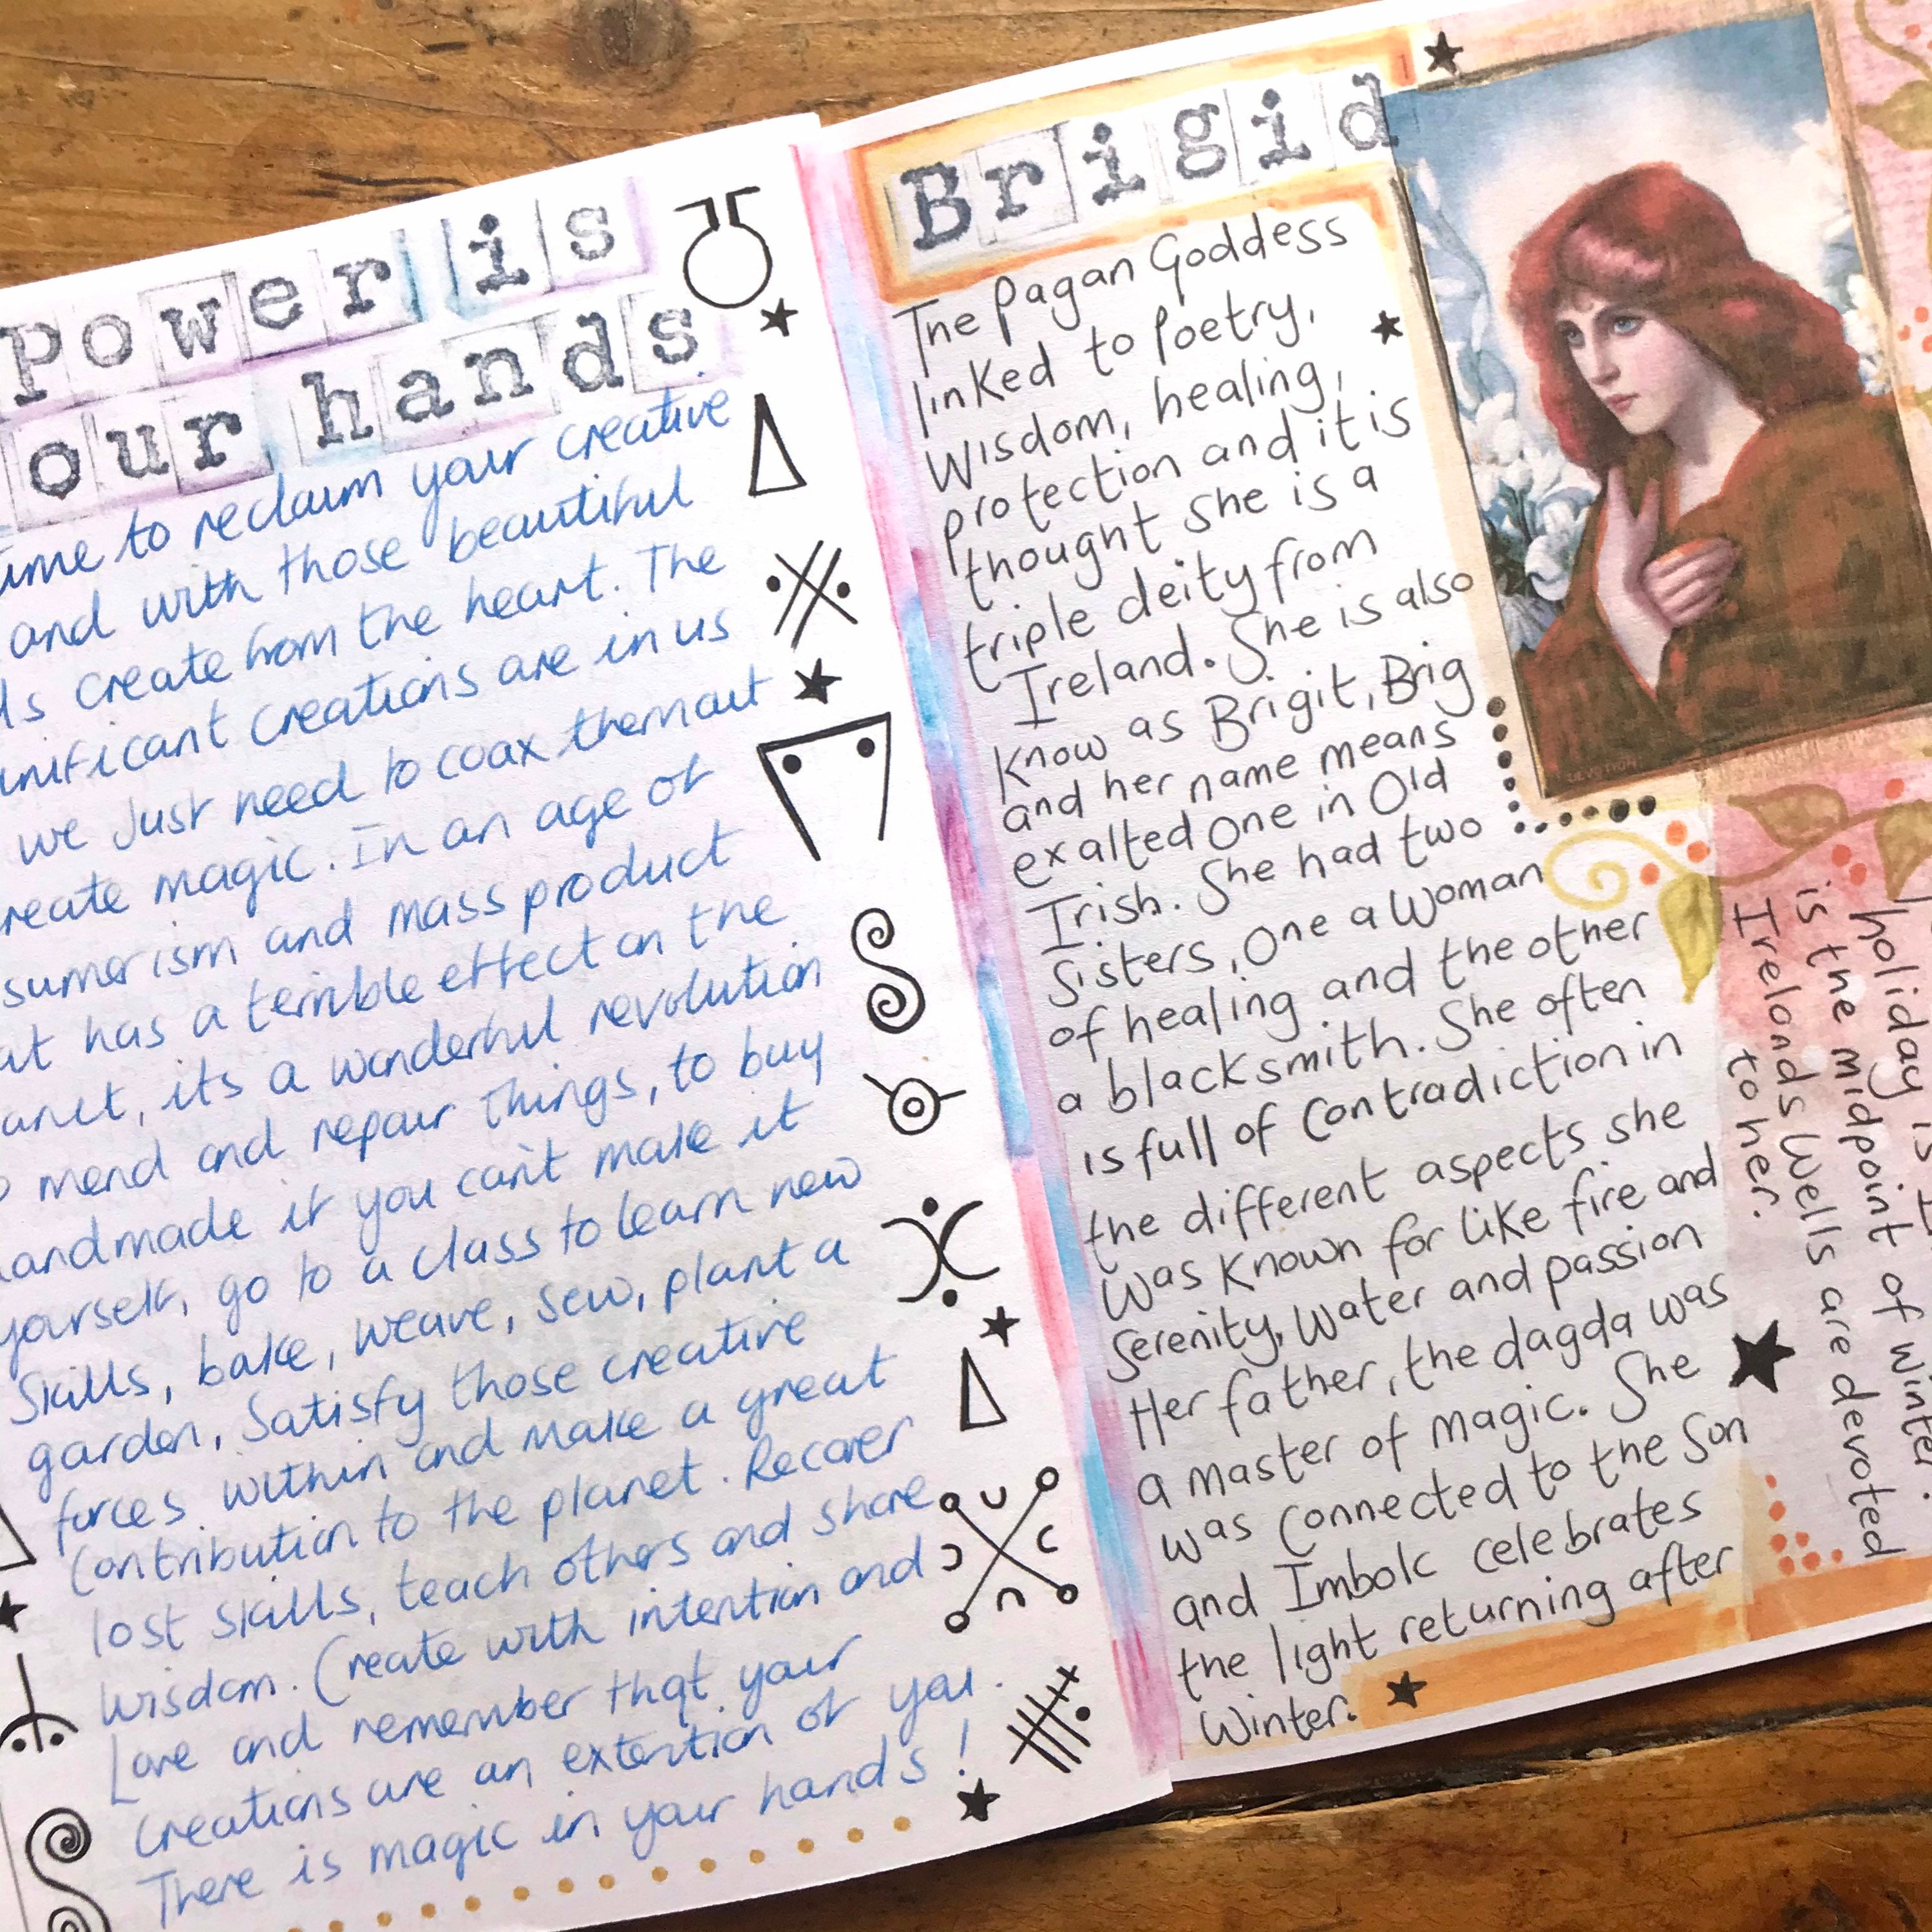 Power is
our hands
time to reclaim your creative
and with those beautiful
create from the heart. The
creations are in us
we Just need to coax them out
create magic. In an age of
and mass product
has a terrible effect on the
its a wonderful revolution
mend and repair things, to buy
handmade if you can't make it
yourself, go to a class to learn new
Skills, bake, weave, sew, plant a
garden, Satisfy those creative
forces within and make a great
Contribution to the planet. Recover
lost skills, teach others and share
wisdom. Create with intention and
Love and remember that your
Creations are an extention of you.
There is magic in your hands!
Brigid
The Pagan Goddess
linked to Poetry,
Wisdom, healing,
protection and it is
thought She is a
triple deity from
Ireland. She is also
know as Brigit, Brig
and her name means
exalted one in Old
Irish. She had two
Sisters, One a Woman
of healing and the other
a blacksmith. She often
is full of Contradiction in
the different aspects she
was known for like fire and
Serenity, Water and passion
Her father, the dagda was
a master of magic. She
was Connected to the Son
and Imbolc celebrates
the light returning after
Winter.
holiday is
is the midpoint of winter.
Irelands Wells are devoted
to her.
DEVOTION